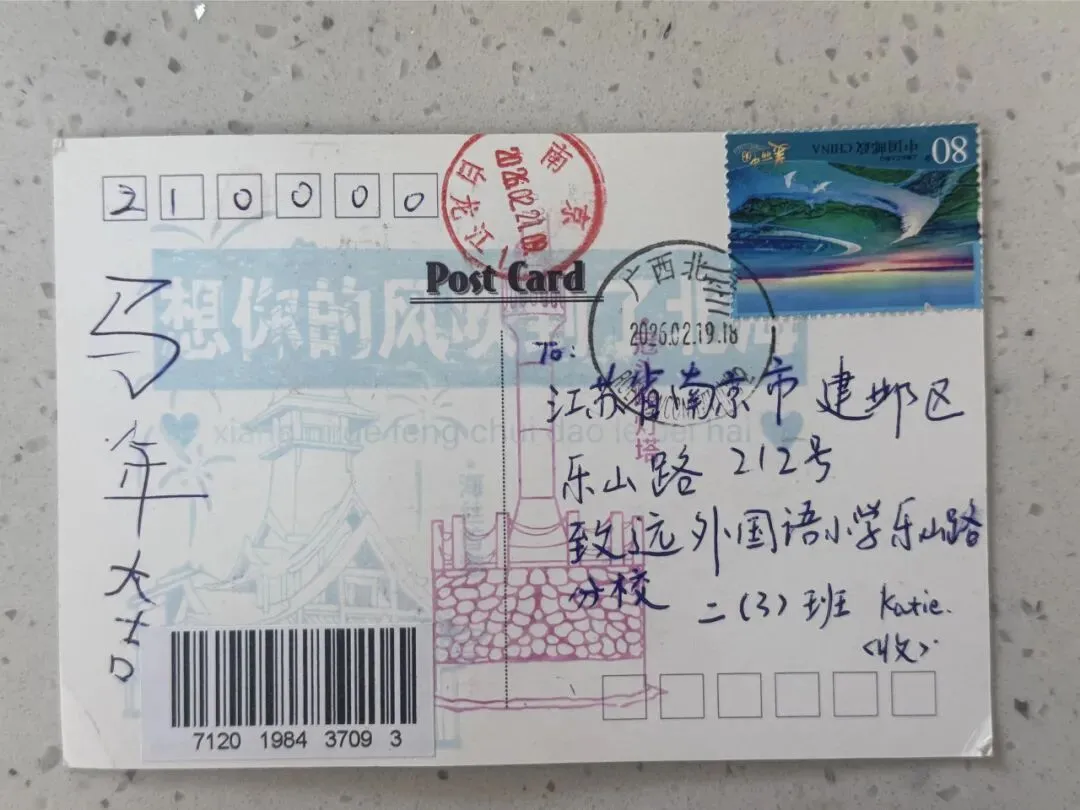 210000
南京
2026.02.21.09
白龙江
中国邮政 CHINA
80
Post Card
广西北
2026.02.19.18
想你的风吹到了北海
xiang ni de feng chui dao le bei hai
灯塔
马年大吉
To:
江苏省南京市建邺区
乐山路 212号
致远外国语小学乐山路
分校
二(3)班 Katie.
<收>
7120 1984 3709 3